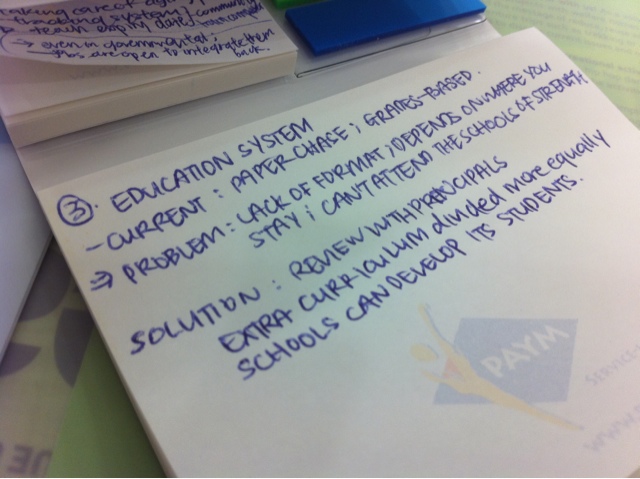 tracking system;
→ even in governmental;
jobs are open to integrate them
back.
③. EDUCATION SYSTEM
- CURRENT: PAPER CHASE; GRADES-BASED.
⇒ PROBLEM: LACK OF FORMAT; DEPENDS ON WHERE YOU
STAY; CAN'T ATTEND THE SCHOOLS OF STRENGTH
SOLUTION: REVIEW WITH PRINCIPALS
EXTRA CURRICULUM divided more equally
SCHOOLS CAN DEVELOP ITS STUDENTS.
PAYM